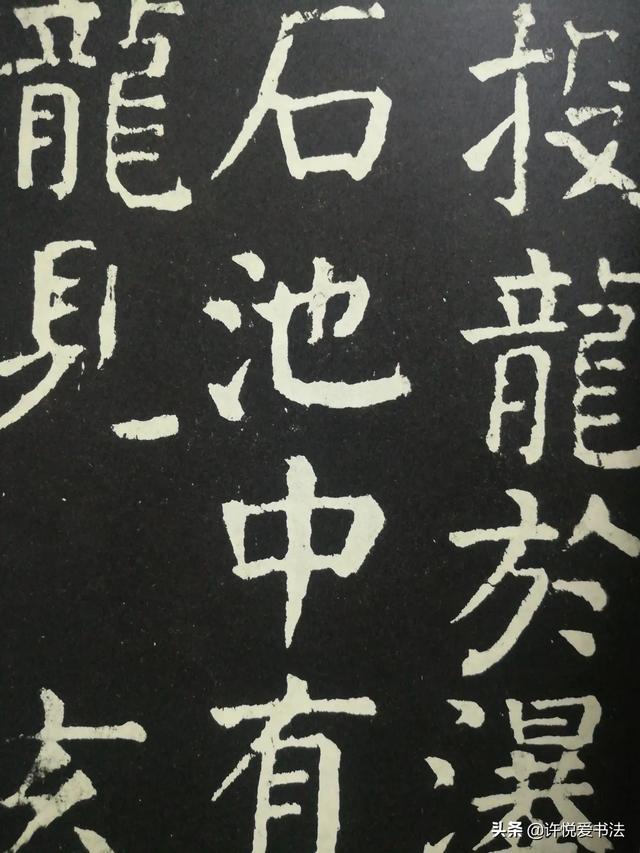 投龍於瀑
石池中有
龍見 玄
头条 @许悦爱书法